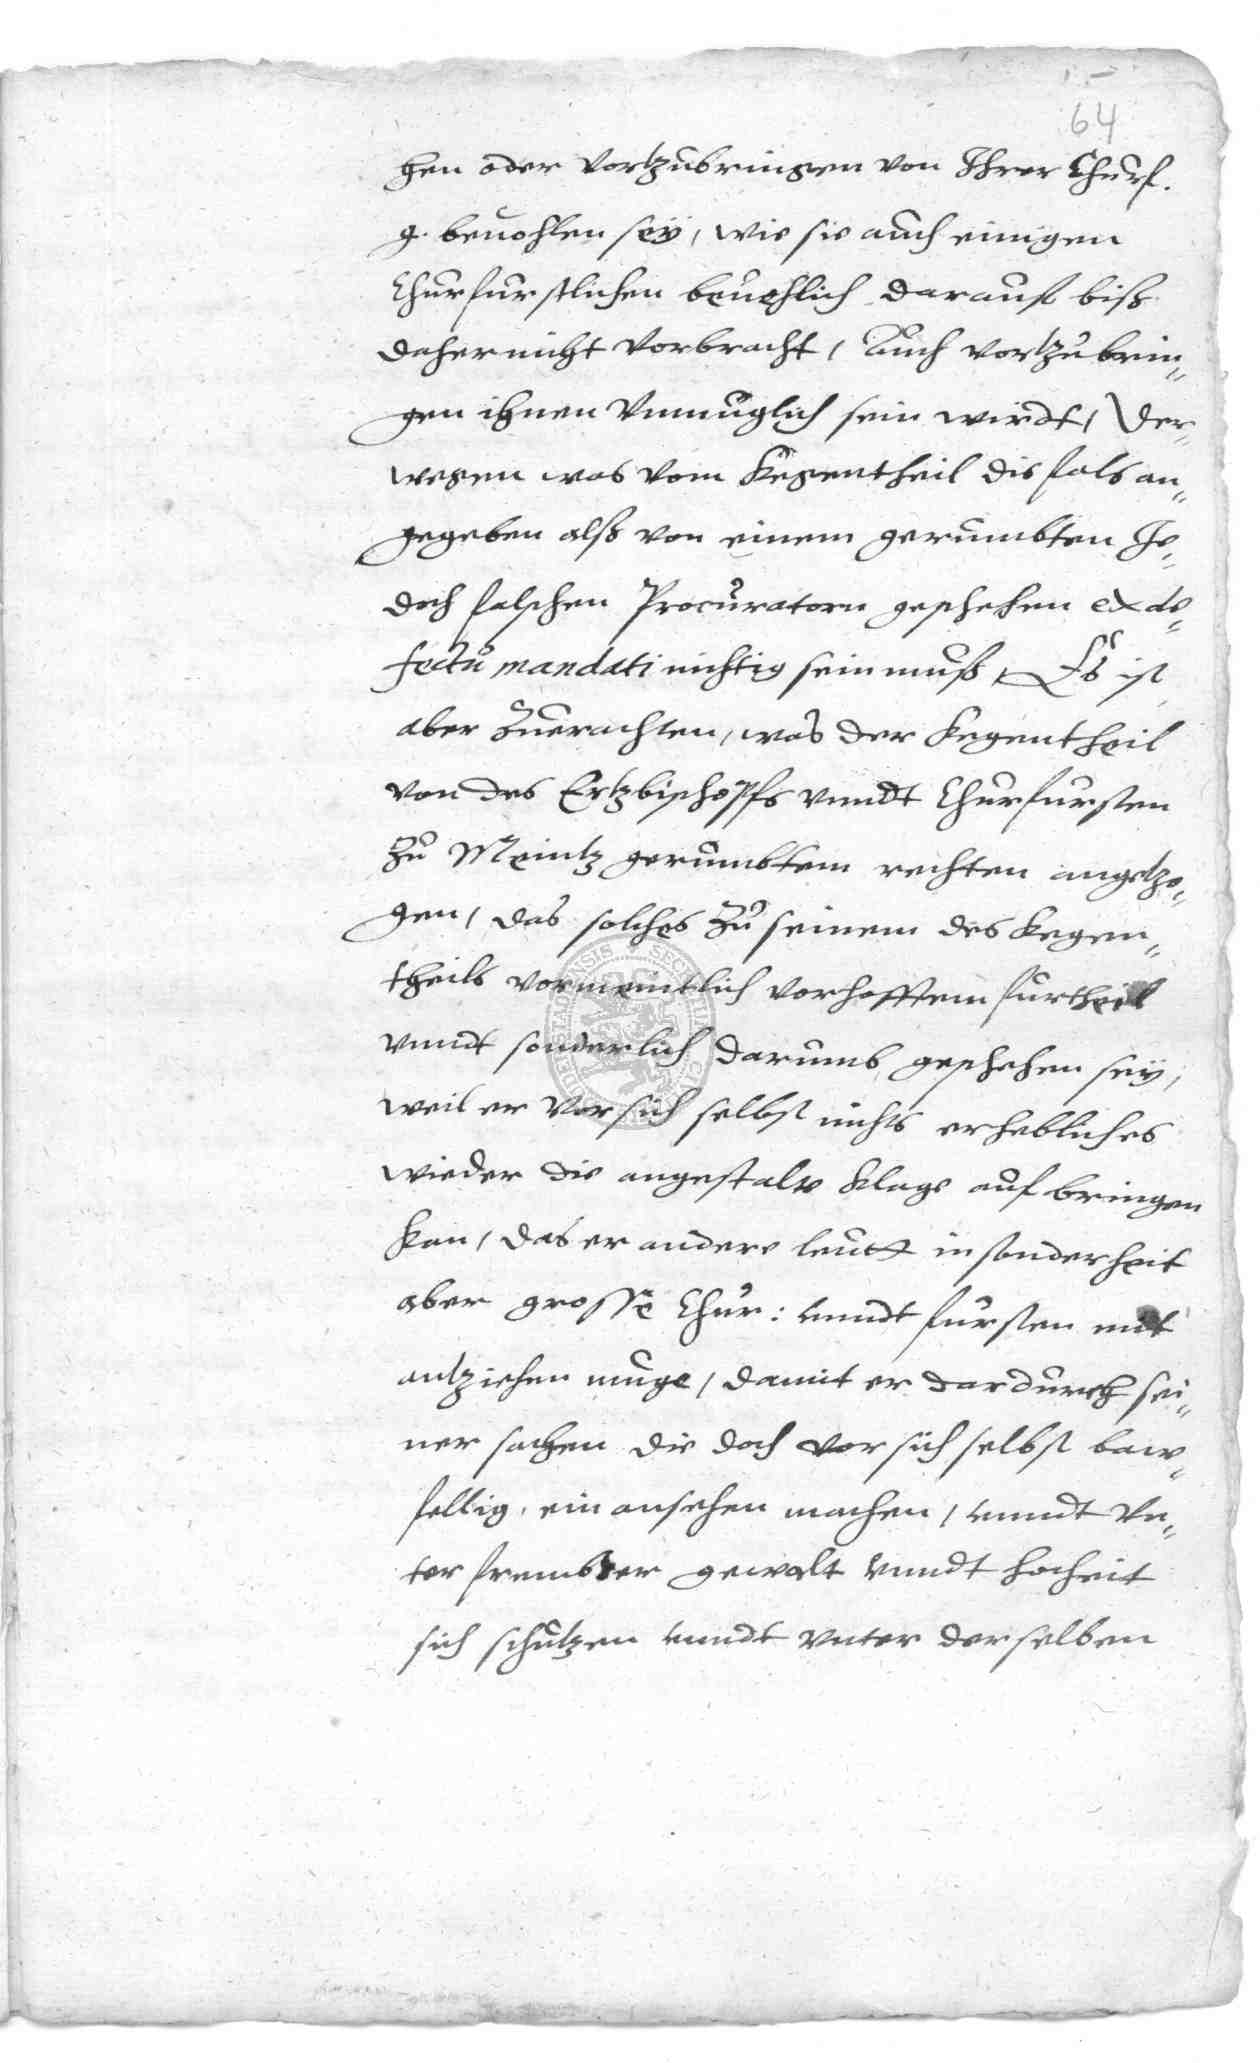 64
hen oder vortzubringen von Ihrer Churf.
g. beuohlen seÿ, wie sie auch einigen
Churfurstlichen beuehlich darauf biß
daher nicht vorbracht, Auch vortzubrin„
gen ihnen vnmuglich sein wirdt, Der„
wegen was vom Kegentheil dis fals an„
gegeben alß von einem gerumbten Je„
doch falschen Procuratorn geschehen ex de„
fectu mandati nichtig sein muß, Es ist
aber Zuerachten, was der Kegentheil
von des Ertzbischoffs vnndt Churfursten
Zu Meintz gerumbtem rechten angetzo„
gen, das solches Zu seinem des Kegen„
theils vormeintlich vorhofftem furtheil
vnndt sonderlich darumb geschehen seÿ,
weil er vor sich selbst nichts erhebliches
wieder die angestalte Klage auf bringen
kan, das er andere leutt in sonderheit
aber grosse Chur: vnndt fursten mit
antziehen muge, damit er dardurch sei„
ner sachen die doch vor sich selbst baw„
fellig, ein ansehen machen, vnndt vn„
ter frembder gewalt vnndt hocheit
sich schutzen vnndt vnter derselben